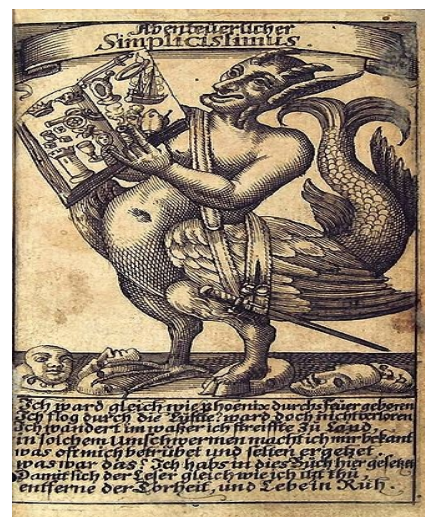 Abenteuerlicher
Simplicissimus
Ich ward gleich wie phoenix durchs Feuer geboren
Ich flog durch die Lüffte? ward doch nicht verloren
Ich wandert im waßer ich streiffte zu Land,
in solchem Umschwermen macht ich mir bekant
was oft mich betrübet und selten ergetzet
was war das? Ich habs in dies Buch hier gesetzet
Damit sich der Leser gleich wie ich itzt thu,
entferne der Torheit, und Lebe in Ruh.